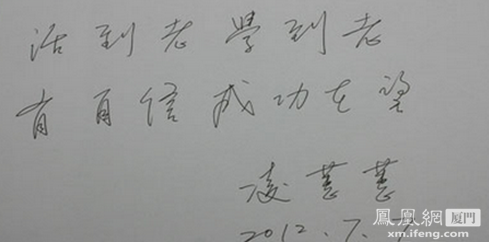 活到老學到老
有自信成功在望
凌蕙蕙
2012.7.7
鳳凰網廈門
xm.ifeng.com